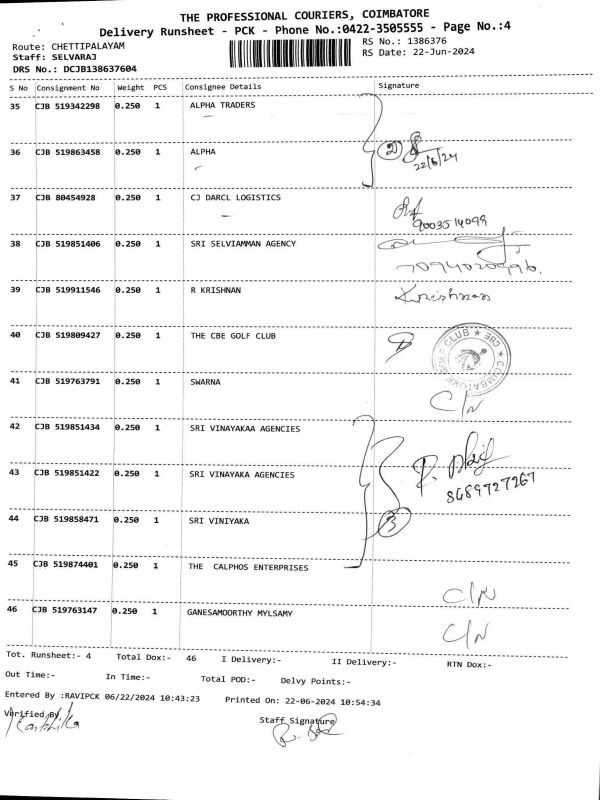 THE PROFESSIONAL COURIERS, COIMBATORE
Delivery Runsheet - PCK - Phone No.:0422-3505555 - Page No.:4
Route: CHETTIPALAYAM RS No.: 1386376
Staff: SELVARAJ RS Date: 22-Jun-2024
DRS No.: DCJB138637604
S No Consignment No Weight PCS Consignee Details Signature
35 CJB 519342298 0.250 1 ALPHA TRADERS
36 CJB 519863458 0.250 1 ALPHA 2
22/6/24
37 CJB 80454928 0.250 1 CJ DARCL LOGISTICS
9003514099
38 CJB 519851406 0.250 1 SRI SELVIAMMAN AGENCY
7094020996.
39 CJB 519911546 0.250 1 R KRISHNAN Krishnan
40 CJB 519809427 0.250 1 THE CBE GOLF CLUB
CLUB ★ CBE ★ COIMBATORE
41 CJB 519763791 0.250 1 SWARNA C/N
42 CJB 519851434 0.250 1 SRI VINAYAKAA AGENCIES
43 CJB 519851422 0.250 1 SRI VINAYAKA AGENCIES
8489727267
44 CJB 519858471 0.250 1 SRI VINIYAKA 3
45 CJB 519874401 0.250 1 THE CALPHOS ENTERPRISES C/N
46 CJB 519763147 0.250 1 GANESAMOORTHY MYLSAMY C/N
Tot. Runsheet:- 4 Total Dox:- 46 I Delivery:- II Delivery:- RTN Dox:-
Out Time:- In Time:- Total POD:- Delvy Points:-
Entered By :RAVIPCK 06/22/2024 10:43:23 Printed On: 22-06-2024 10:54:34
Verified By Staff Signature